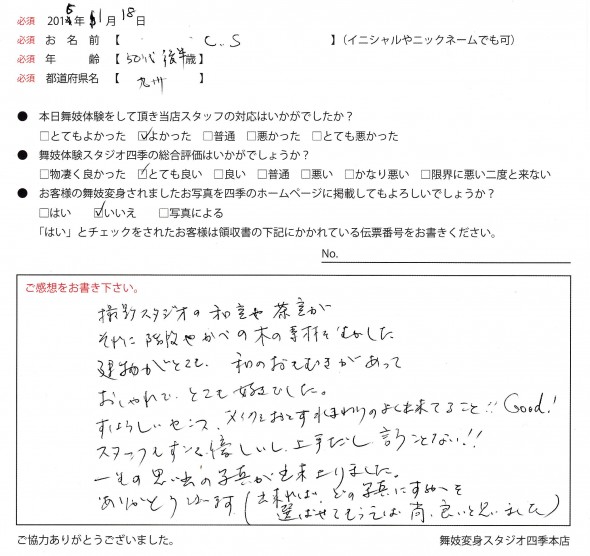 必須 2015年 11月 18日
必須 お 名 前 【 C.S 】(イニシャルやニックネームでも可)
必須 年 齢 【 50代 後半歳】
必須 都道府県名 【 九州 】
● 本日舞妓体験をして頂き当店スタッフの対応はいかがでしたか？
□とてもよかった ☑よかった □普通 □悪かった □とても悪かった
● 舞妓体験スタジオ四季の総合評価はいかがでしょうか？
□物凄く良かった ☑とても良い □良い □普通 □悪い □かなり悪い □限界に悪い二度と来ない
● お客様の舞妓変身されましたお写真を四季のホームページに掲載してもよろしいでしょうか？
□はい ☑いいえ □写真による
「はい」とチェックをされたお客様は領収書の下記にかかれている伝票番号をお書きください。
No.
ご感想をお書き下さい。
撮影スタジオの和室や茶室が
それに階段やかべの木の素材をいかした
建物がとても、和のおもむきがあって
おしゃれで、とても好きでした。
すばらしいセンス、メイクをおとす水まわりのよく出来てること!! Good!
スタッフもすごく優しいし、上手だし 言うことない!!
一生の思い出の写真が出来上りました。
ありがとうございます (出来れば、どの写真にするかを
選ばせてもらえば 尚、良いと思いました)
ご協力ありがとうございました。
舞妓変身スタジオ四季本店